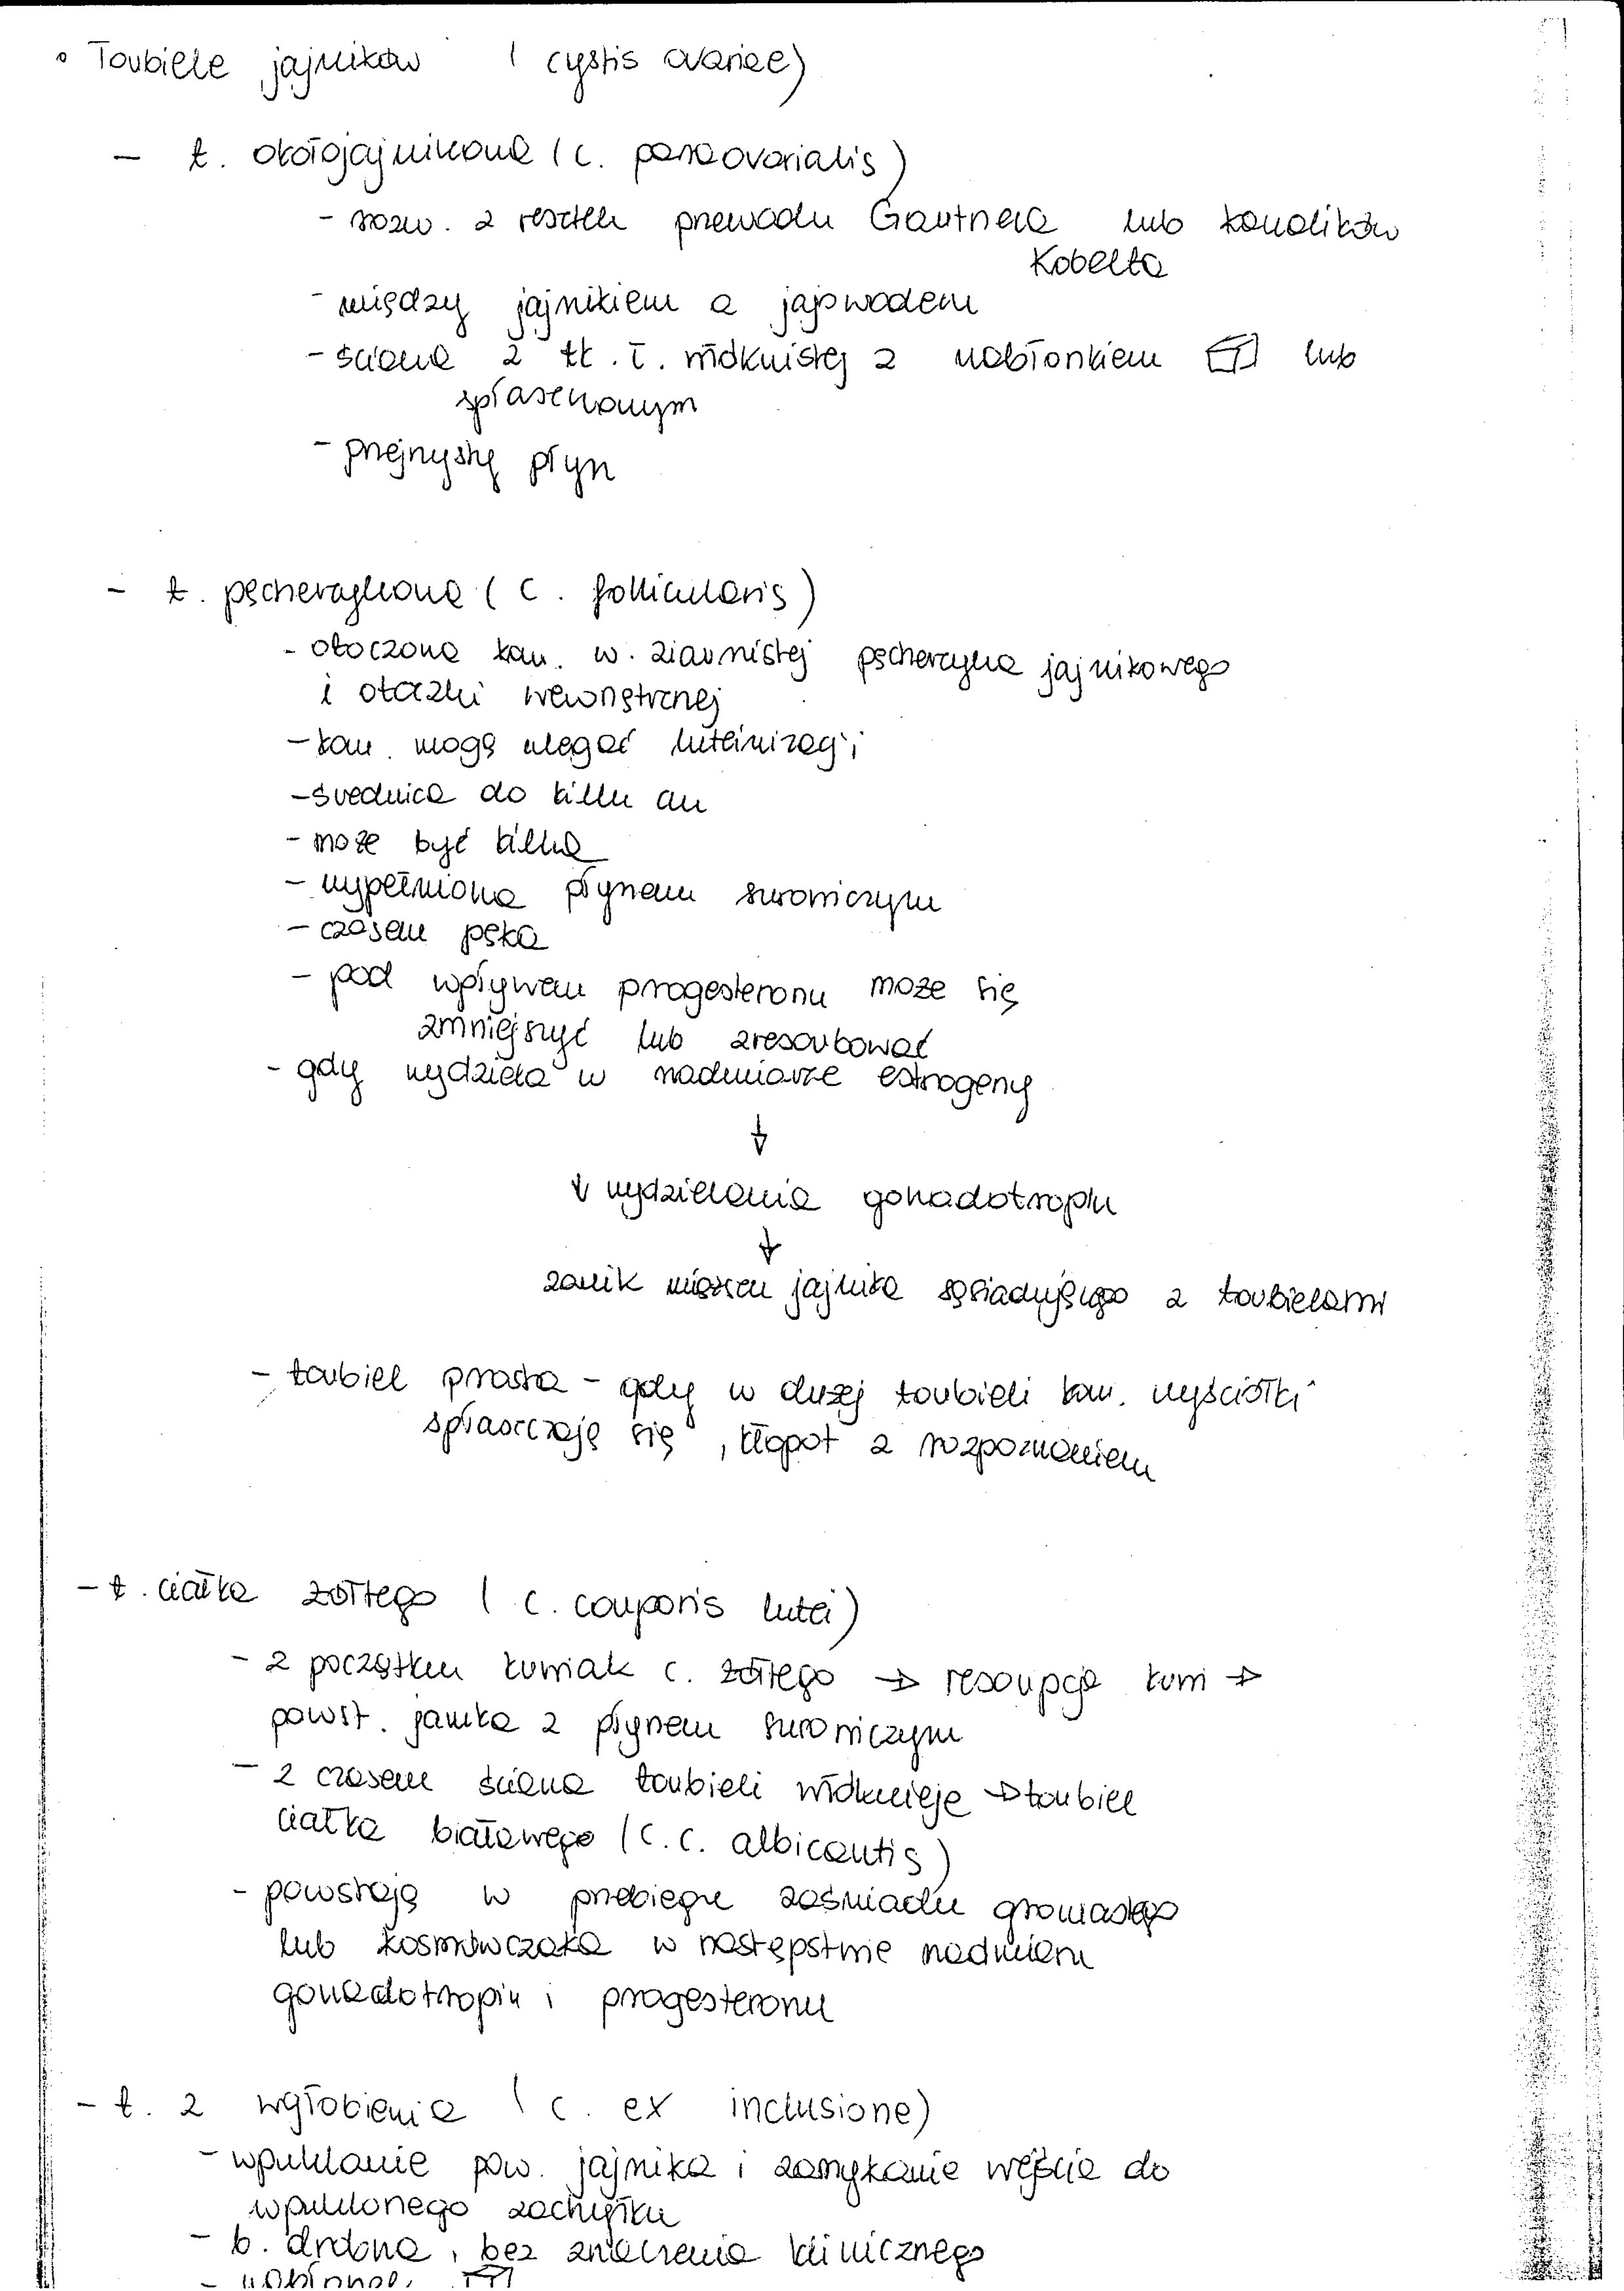 • Torbiele jajników (cystis ovariae)
- t. okołojajnikowa (c. paraovarialis)
- rozw. z resztek przewodu Gartnera lub kanalików
Kobelta
- między jajnikiem a jajowodem
- ściana z tk. ł. włóknistej z nabłonkiem lub
spłaszczonym
- przejrzysty płyn
- t. pęcherzykowa (c. follicularis)
- otoczona kom. w. ziarnistej pęcherzyka jajnikowego
i otoczki wewnętrznej
- kom. mogą ulegać luteinizacji
- średnica do kilku cm
- może być kilka
- wypełniona płynem surowiczym
- czasem pęka
- pod wpływem progesteronu może się
zmniejszyć lub zresorbować
- gdy wydziela w nadmiarze estrogeny
↓
↓ wydzielania gonadotropin
↓
zanik miąższu jajnika sąsiadującego z torbielami
- torbiel prosta - gdy w dużej torbieli kom. wyściółki
spłaszczają się, kłopot z rozpoznaniem
- t. ciałka żółtego (c. corporis lutei)
- z początku krwiak c. żółtego → resorpcja krwi →
powst. jamka z płynem surowiczym
- z czasem ściana torbieli włóknieje → torbiel
ciałka białawego (c. c. albicantis)
- powstają w przebiegu zaśniadu groniastego
lub kosmówczaka w następstwie nadmiaru
gonadotropin i progesteronu
- t. z wgłobienia (c. ex inclusione)
- wpuklanie pow. jajnika i zamykanie wejścia do
wpuklonego zachyłku
- b. drobna, bez znaczenia klinicznego